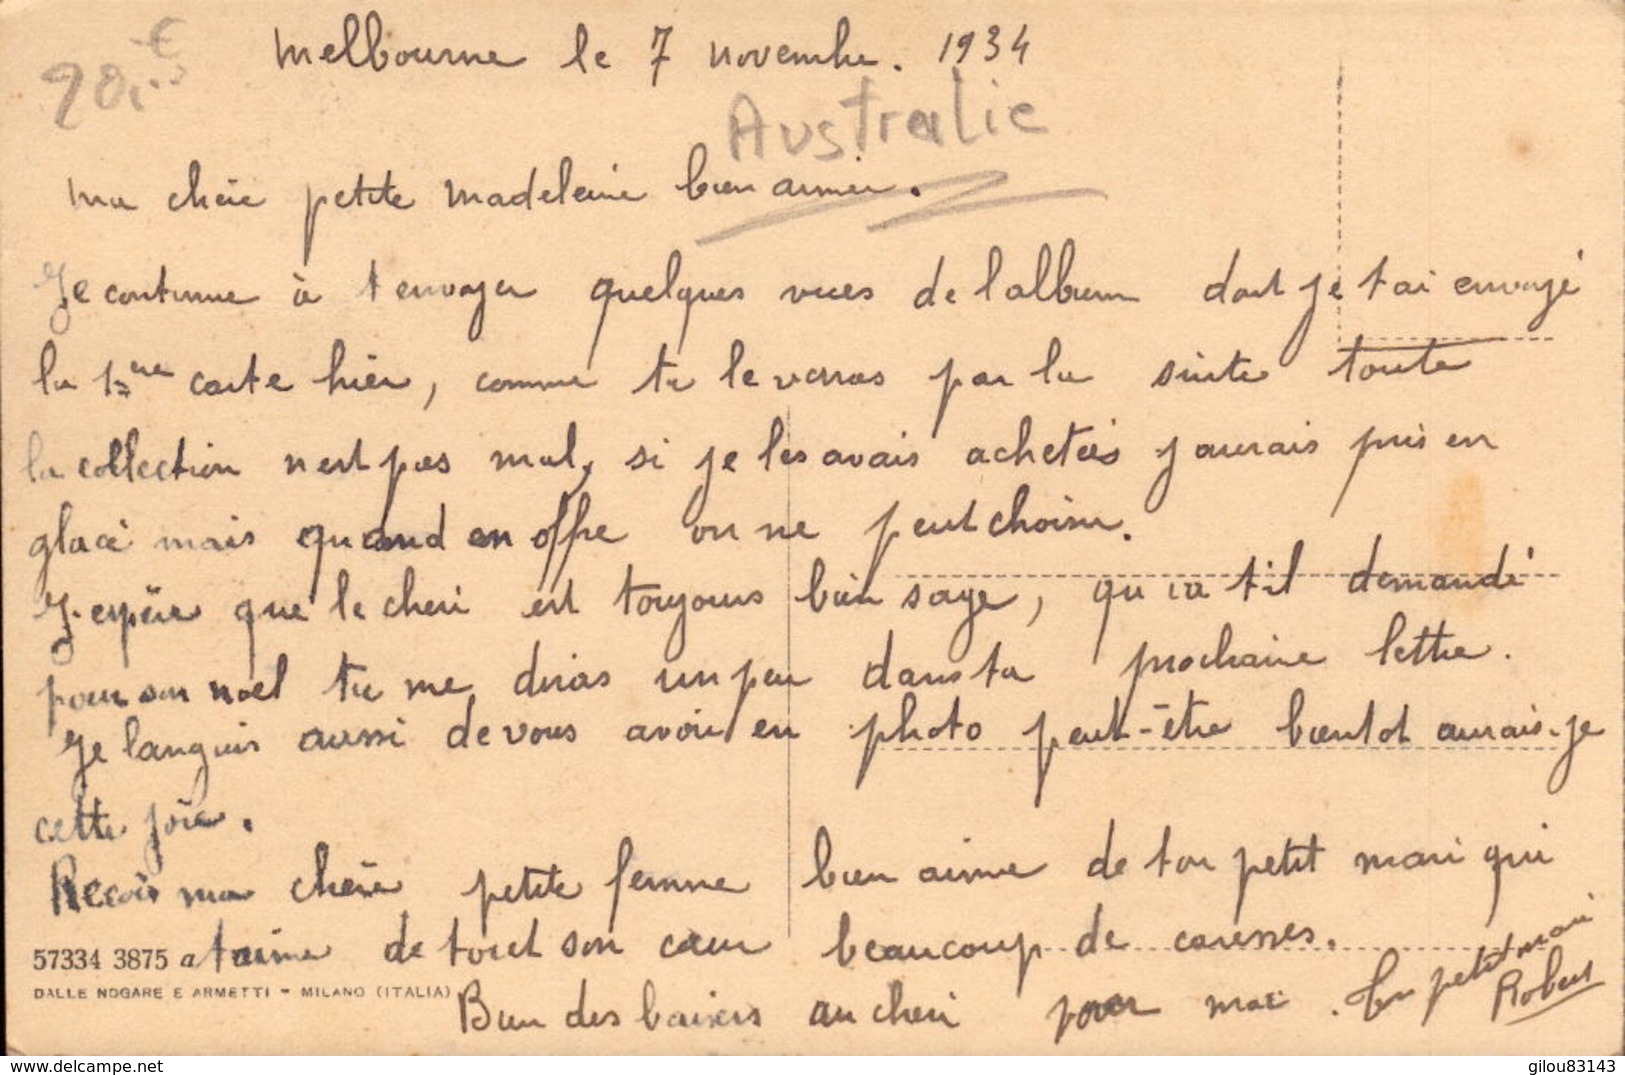 Melbourne le 7 novembre. 1934
20,- €
Australie
Ma chère petite Madeleine bien aimée.
Je continue à t envoyer quelques vues de l album dont je t ai envoyé
la 1ère carte hier, comme tu le verras par la suite toute
la collection n est pas mal, si je les avais achetées j aurais pris en
glacé mais quand on offre on ne peut choisir.
J espère que le cheri est toujours bien sage, qu a t il demandé
pour son noel tu me diras un peu dans ta prochaine lettre.
Je languis aussi de vous avoir en photo peut-être bientot aurais-je
cette joie.
Recois ma chère petite femme bien aimée de ton petit mari qui
57334 3875 a t aime de tout son cœur beaucoup de caresses.
DALLE NOGARE E ARMETTI - MILANO (ITALIA)
Bien des baisers au cheri pour moi. Ton petit mari
Robert
gilou83143